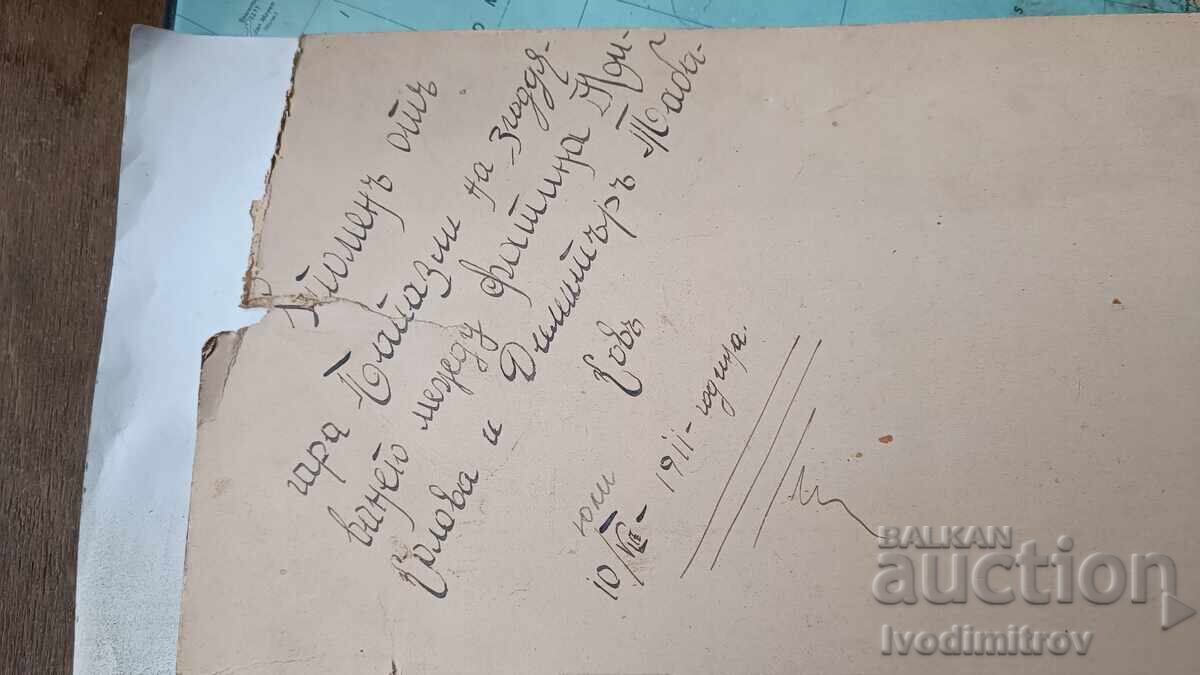 Споменъ отъ
гара Папазли на згодя-
ването между Фотина Ни-
колова и Димитъръ Таба-
ковъ
юли
10/VII - 1911 - година.
BALKAN
auction
Ivodimitrov